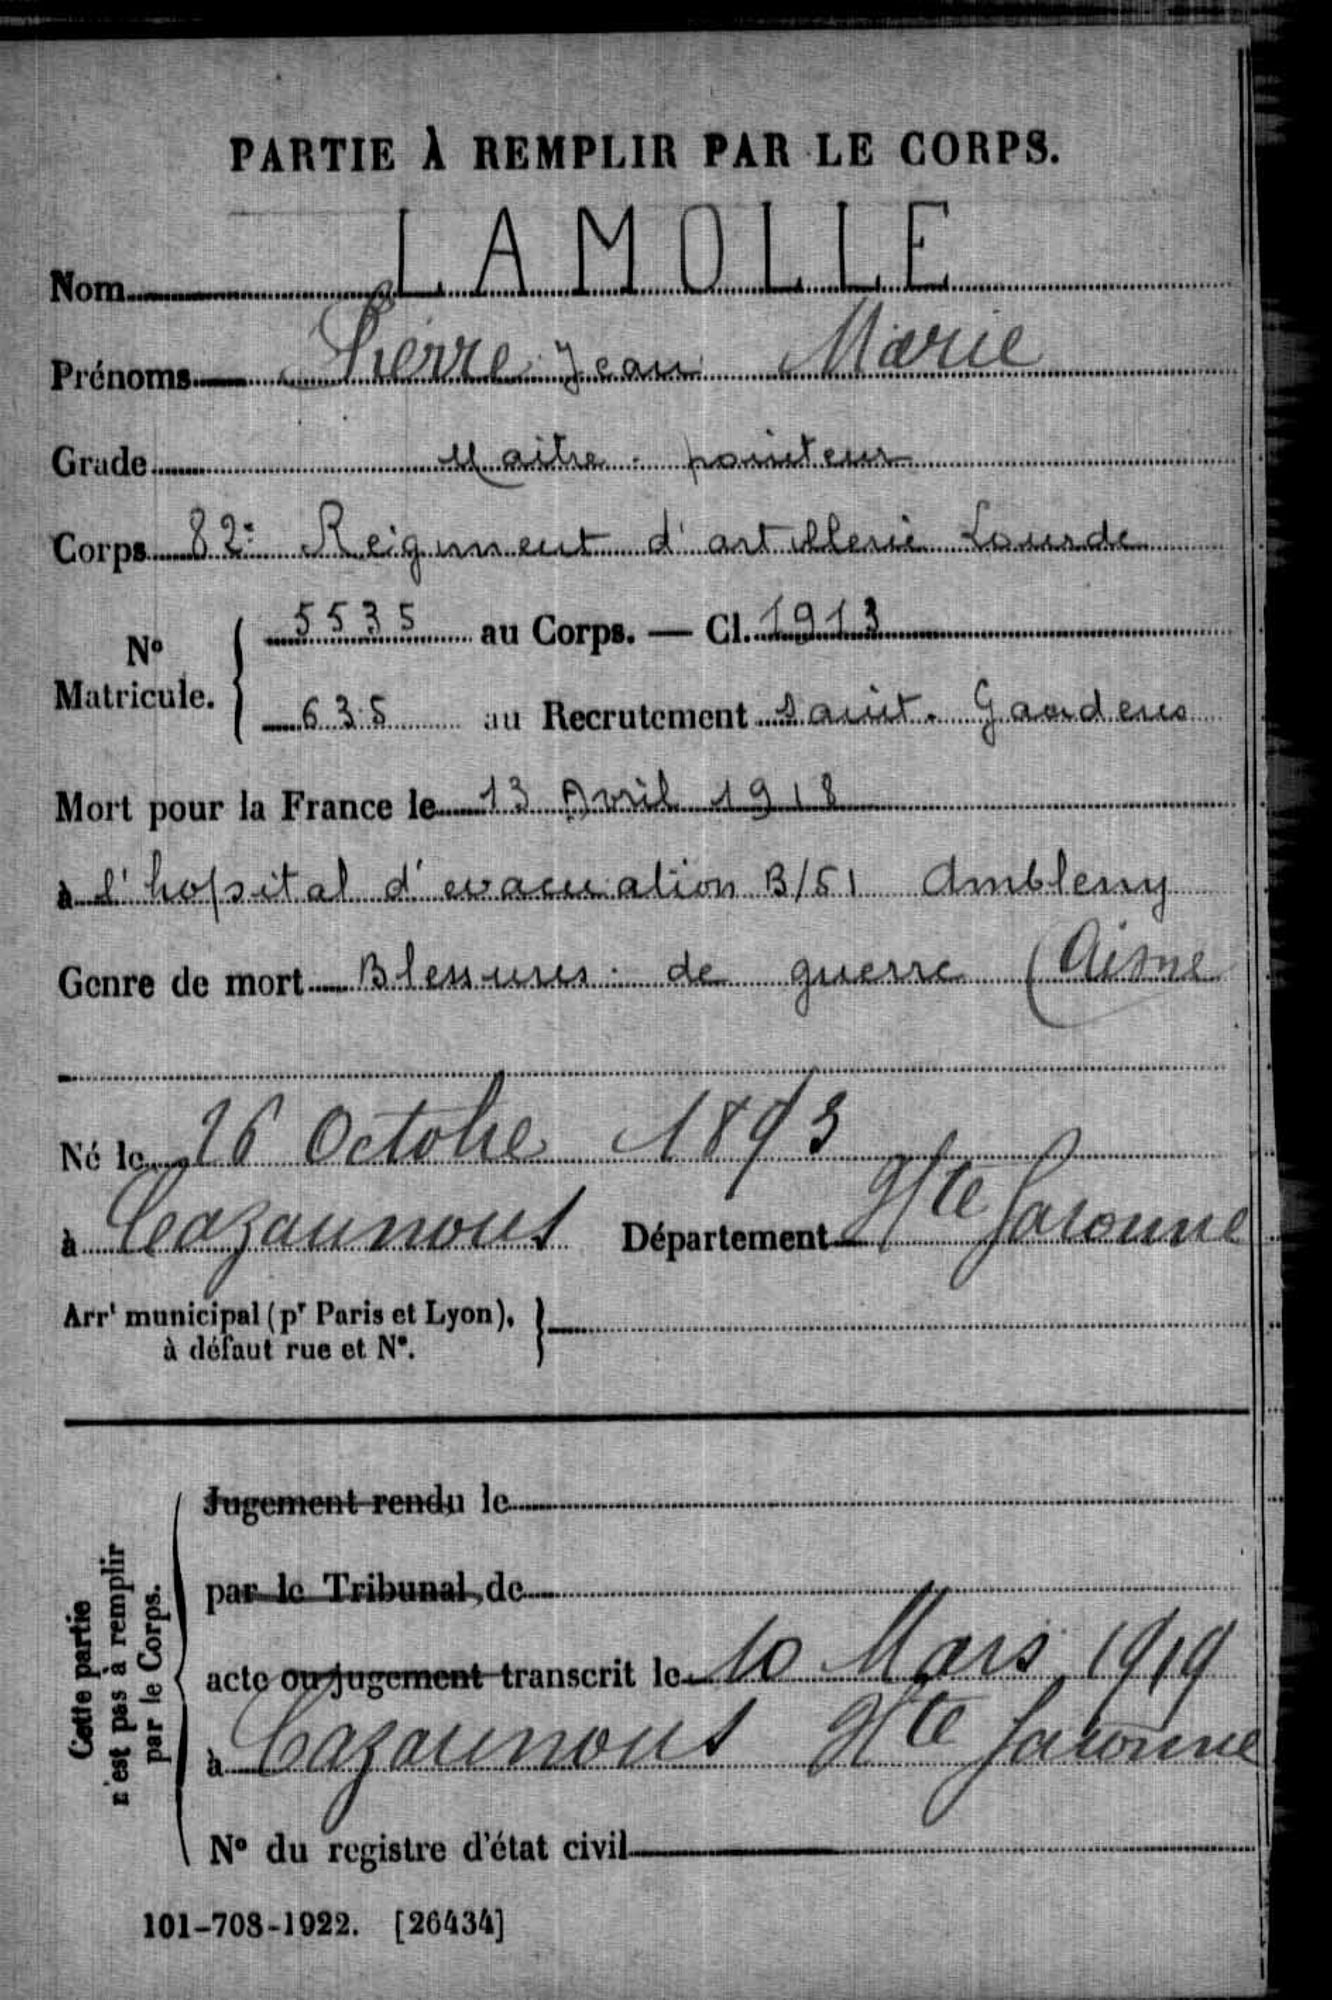 PARTIE À REMPLIR PAR LE CORPS.
Nom LAMOLLE
Prénoms Pierre Jean Marie
Grade Maitre-pointeur
Corps 82e Reigiment d'artillerie Lourde
No Matricule. 5535 au Corps. — Cl. 1913
635 au Recrutement Saint-Gaudens
Mort pour la France le 13 Avril 1918
à l'hopsital d'evacuation B/51 Ambleny
Genre de mort Blessures de guerre (Aisne
Né le 26 Octobre 1893
à Cazaunous Département Hte Garonne
Arrt municipal (pr Paris et Lyon),
à défaut rue et No.
Cette partie
n'est pas à remplir
par le Corps.
Jugement rendu le
par le Tribunal de
acte ou jugement transcrit le 10 Mars 1919
à Cazaunous Hte Garonne
No du registre d'état civil
101-708-1922. [26434]